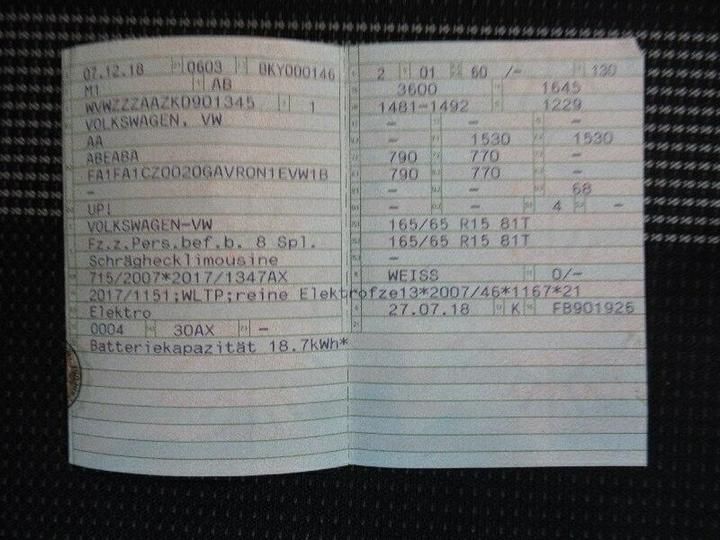 07.12.18 0603 BKY000146
M1 AB
WVWZZZAAZKD901345 1
VOLKSWAGEN, VW
AA
ABEABA
FA1FA1CZ0020GAVRON1EVW1B
-
UP!
VOLKSWAGEN-VW
Fz.z.Pers.bef.b. 8 Spl.
Schräghecklimousine
715/2007*2017/1347AX
2017/1151;WLTP;reine Elektrofze13*2007/46*1167*21
Elektro
0004 30AX -
Batteriekapazität 18.7kWh*
2 01 60 /- 130
3600 1645
1481-1492 1229
- - -
- 1530 1530
790 770 -
790 770 -
- - 68
- - 4 -
165/65 R15 81T
165/65 R15 81T
-
WEISS 0/-
27.07.18 K FB901926